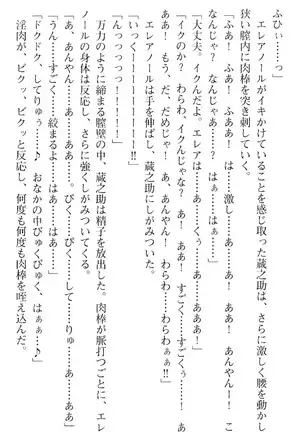 ふひぃ……っ」
エレアノールがイキかけていることを感じ取った蔵之助は、さらに激しく腰を動かし
狭い膣内に肉棒を突き刺していく。
「ふあ！　ふあ！　ふああ！　は……激し……あ……ああ！　ああ！　あんやん……！　こ
なんじゃ？　なんじゃあ……？　はぁ……はぁ……」
「大丈夫。イクんだよ。エレア……」
「イクのか？　わらわ、イクんじゃな？　あ！　あ！　すごく……すごくぅ……ああ……
ああ！　もう、だ、だめじゃ！　あ！　あ、あんやん！　わらわ……わらわぁぁ！
いっくぅーーーーーーー！！」
エレアノールは手を伸ばし、蔵之助にしがみついた。
「んっっっっっ！！！！！」
万力のように締まる膣壁の中、蔵之助は精子を放出した。肉棒が脈打つごとに、エレ
ノールの身体は反応し、さらに強くしがみついてくる。
「あ、あんやん……あ……ああ……。ぴく……ぴく……して……りゅ……あ……ああ」
「うん……すごく……絞まるよ……エレア……」
「ドクドク、してりゅぅ……♪　おなかの中ぴゅくぴゅく、はぁぁ……♪
淫肉が、ピクッ、ピクッと反応し、何度も何度も肉棒を咥え込んだ。